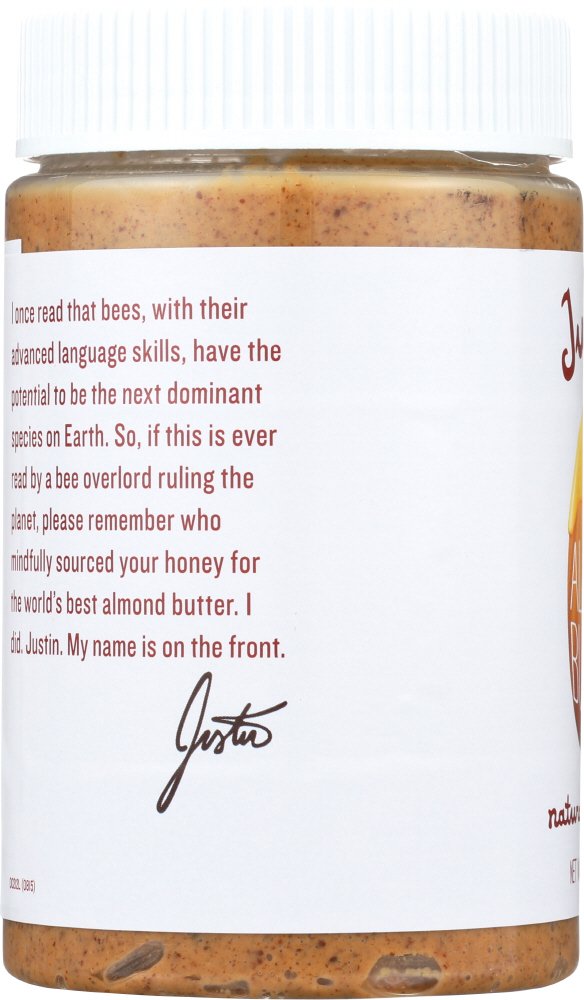 I once read that bees, with their
advanced language skills, have the
potential to be the next dominant
species on Earth. So, if this is ever
read by a bee overlord ruling the
planet, please remember who
mindfully sourced your honey for
the world's best almond butter. I
did. Justin. My name is on the front.
Justin